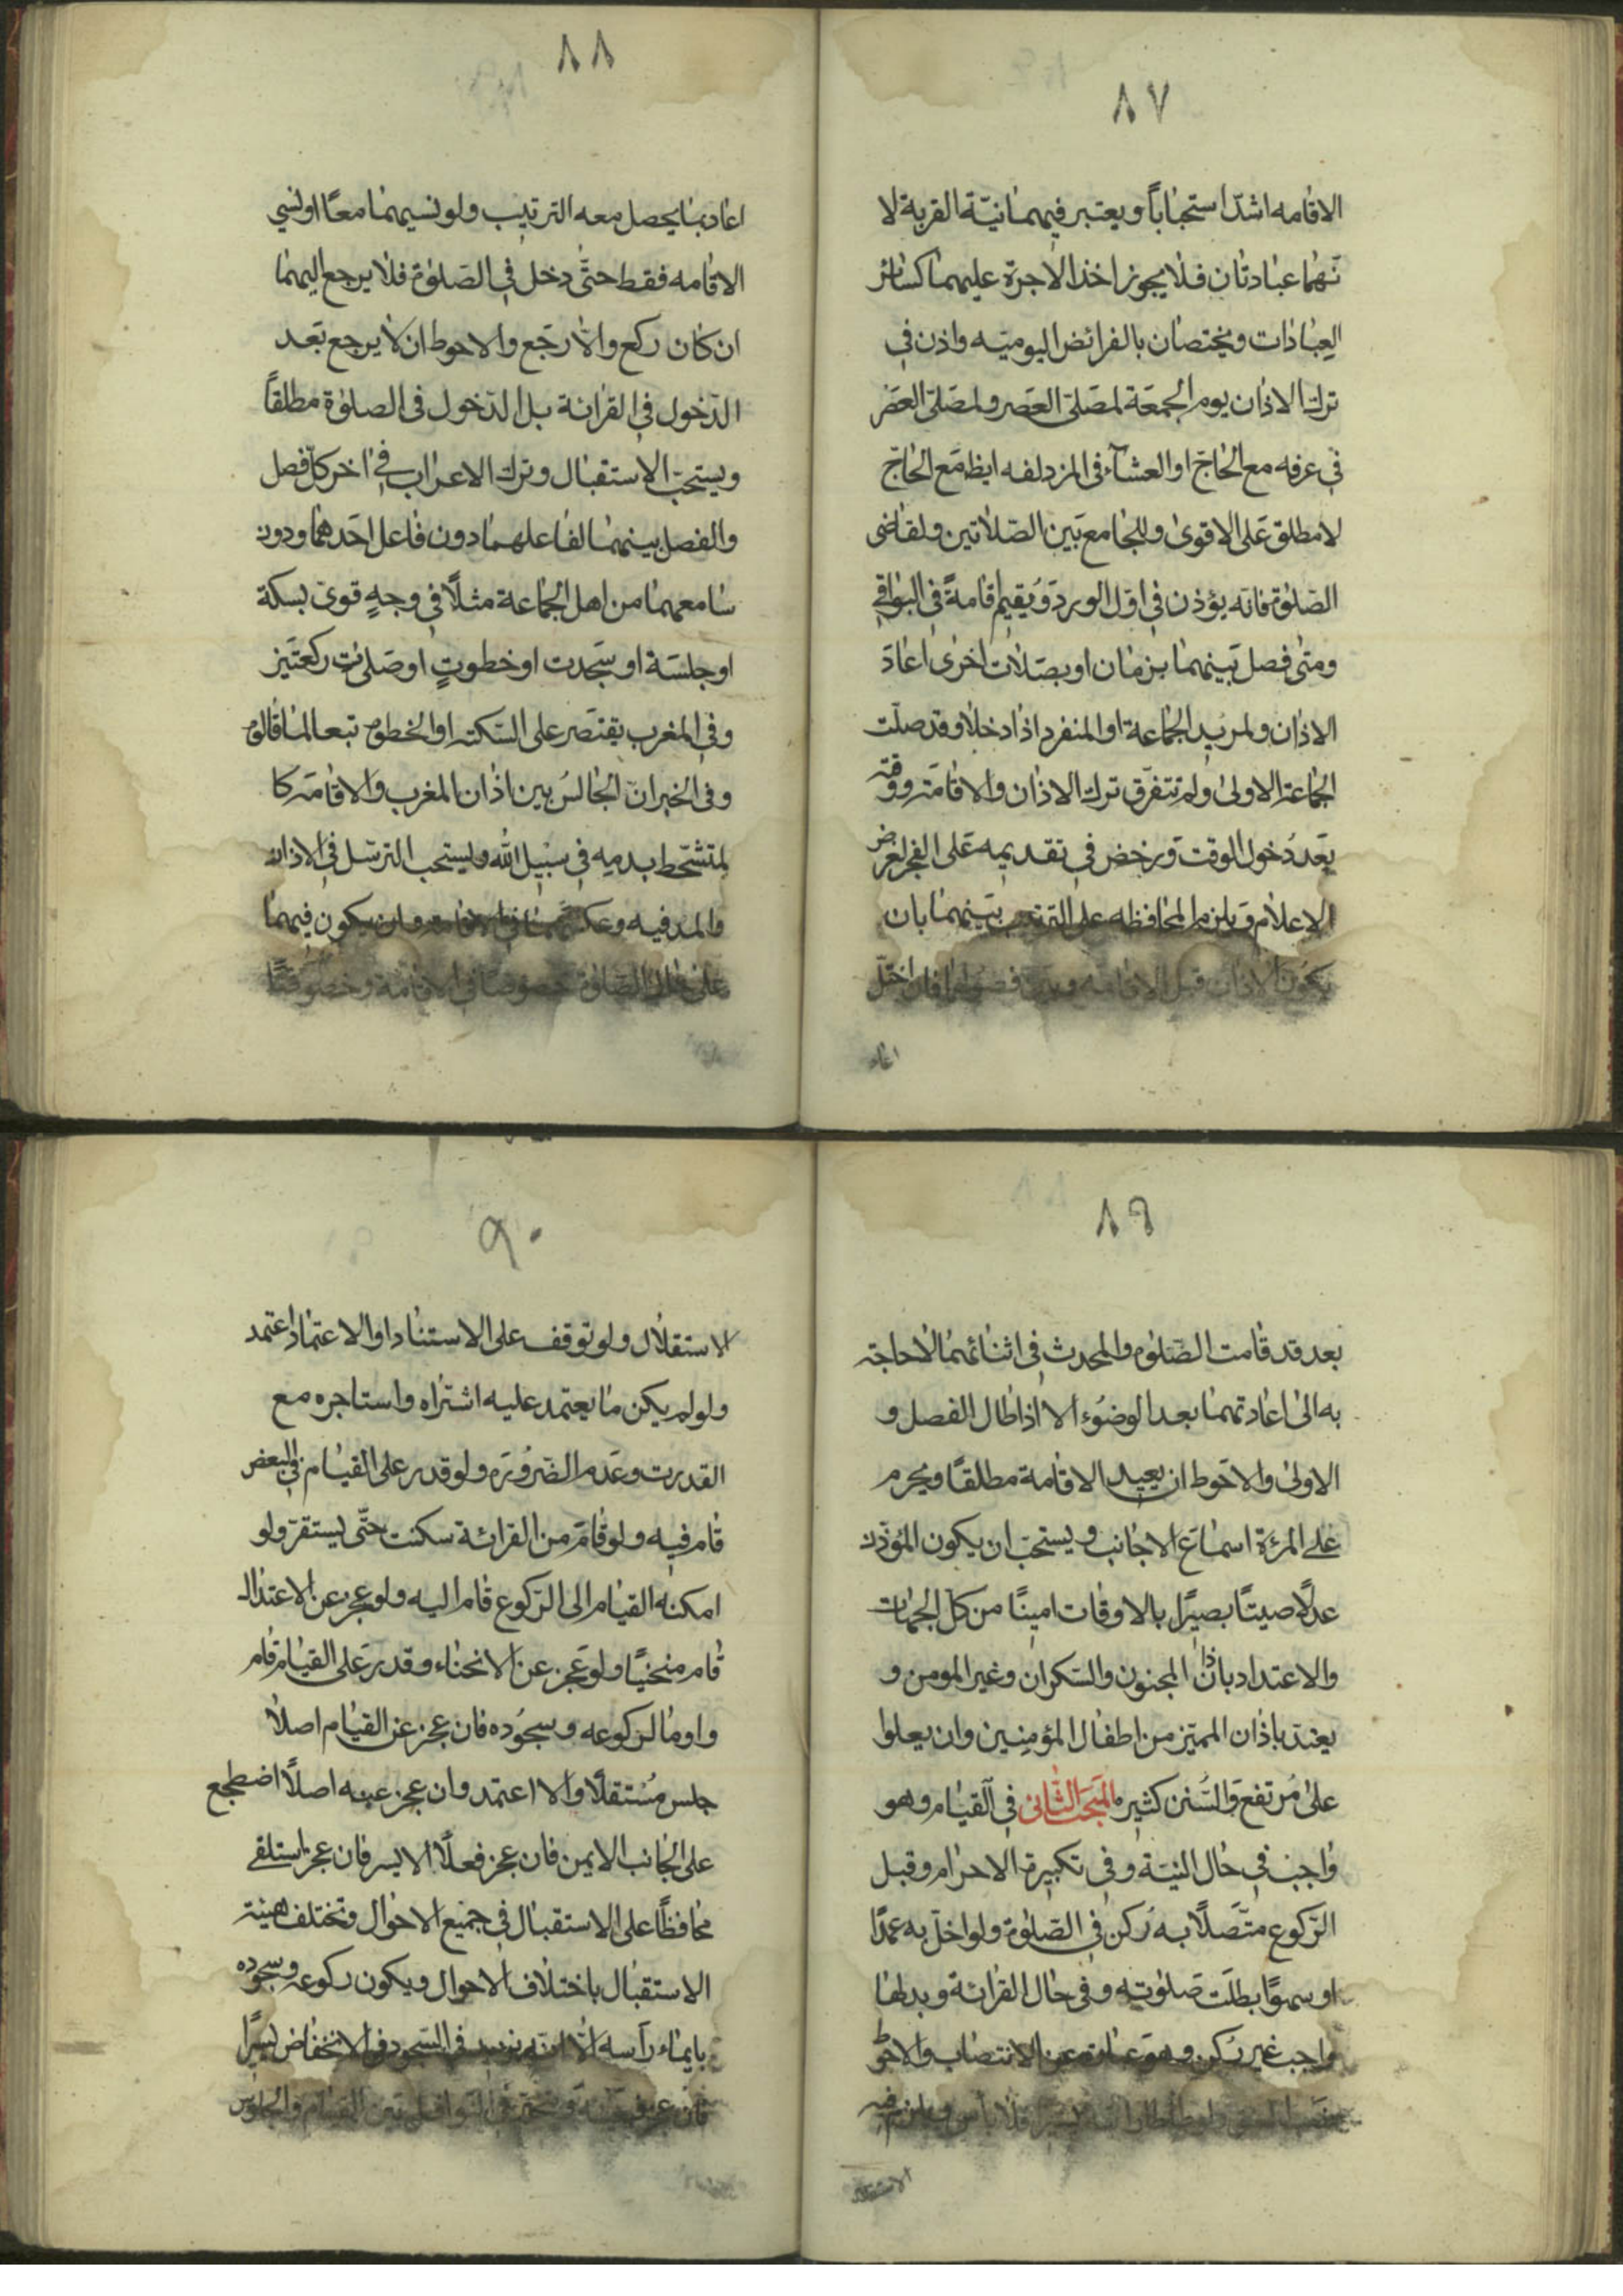 ٨٧
الاقامه اشدّ استحباباً ويعتبر فيهما نيّة القربة لا
نّهما عبادتان فلا يجوز اخذ الاجرة عليهما كسائر
العِبادات ويختصان بالفرائض اليوميّه واذن في
ترك الاذان يوم الجمعَة لمصَلّى العَصر ولمصَلّى العَصر
في عرفه مع الحاجّ او العشآء فى المزدلفه ايظ مَع الحاجّ
لا مطلق عَلى الاقوىٰ وللجامع بَين الصّلاتين ولقاضى
الصّلوٰة فانّه يؤذن في اوّل الورد وَيُقيم اقامةً في البواقي
ومتى فصل بَينهما بزمان او بصَلات اخرىٰ اعادَ
الاذان ولمريد الجماعة او المنفرد اذا دخلا وقد صلّت
الجماعة الاولىٰ ولم تتفرّق ترك الاذان والاقامَة ووقته
بعَد دُخول الوقت ويرخص في تقديمه عَلى الفجر لغرض
الاعلام ويلزم المحافظه على الترتيب بَينهما بان
يكون الاذان قبل الاقامه فان اختلّ
اعاد
٨٨
اعاد بما يحصل معه الترتيب ولو نسيهما معًا او نسي
الاقامه فقط حتّى دخل في الصَلوٰة فلا يرجع اليهما
ان كان ركع والّا رجَع والاحوط ان لا يرجع بعَد
الدّخول في القرائة بل الدّخول فى الصلوٰة مطلقاً
ويستحبّ الاستقبال وترك الاعراب في اخر كلّ فصل
والفصل بينهما لفاعلهما دون فاعل احَدهما ودون
سامعهما من اهل الجماعة مثلًا في وجهٍ قوى بسكتة
او جلسَة او سَجدت او خطوتٍ او صَلوٰت ركعتَين
وفي المغرب يقتصَر على السّكتة او الخطوه تبعا لما قالوه
وفى الخبر انّ الجالسُ بين اذان المغرب والاقامَة كا
لمتشحّط بدمِه في سَبيل الله ويستحب الترسّل في الاذان
والمد فيه وان يكون فيهما
على الصّلوٰة خصوصا في الاقامة وخصوصًا
٨٩
بعد قد قامت الصَلوٰة والمحدث في اثنائهما لاحاجة
به الىٰ اعادتهما بعد الوضُوء الا اذا طال الفصل و
الاولىٰ والاحَوط ان يعيد الاقامة مطلقًا ويحرم
على المرئة اسماع الاجانب ويستحبّ ان يكون المُؤذّن
عدلًا صيتًا بصيرًا بالاوقات امينًا من كلّ الجهات
والاعتداد باذان المجنون والسّكران وغير المومن و
يعتدّ باذان المميّز من اطفال المؤمِنين وان يعلوا
علىٰ مُرتفع وَالسُّنن كثيره المَبحَث الثانى في القيام وهو
واجب في حال النيّة وفي تكبيرة الاحرام وقبل
الرّكوع متّصَلًا به رُكن في الصَلوٰة ولو اخلّ به عمدًا
او سهوًا بطلَت صَلوٰته وفى حال القرائة وبدلها
واجب غير رُكن وهو عبارة عن الانتصاب والاحوَط
فلا باس ويلزم فيه
الاستقلا
٩٠
الاستقلال ولو توقف على الاستناد او الاعتماد اعتمد
ولو لم يكن ما يعتمد عليه اشتراه واستاجره مع
القدرت وعَدم الضّروُرَة ولو قدر على القيام في البعض
قام فيه ولو قامَ من القرائة سكنت حتّى يستقرّ ولو
امكنه القيام الى الرّكوع قام اليه ولو عجز عن الاعتدال
قام منحنيًا ولو عَجز عن الانحناء وقدر عَلى القيام قام
واومأ لركوعه وسجُوده فان عجز عن القيام اصلًا
جلس مُستقلًا والا اعتمد وان عجز عنه اصلًا اضطجع
على الجانب الايمن فان عجز فعلًا الايسر فان عجز استلقى
محافظًا على الاستقبال في جميع الاحوال وتختلف هيئة
الاستقبال باختلاف الاحوال ويكون ركوعه وسجوده
بايماء رأسه الّا انّه يزيد فى السّجود في الانخفاض يسيرًا
فان عجز بين القيام والجلوس